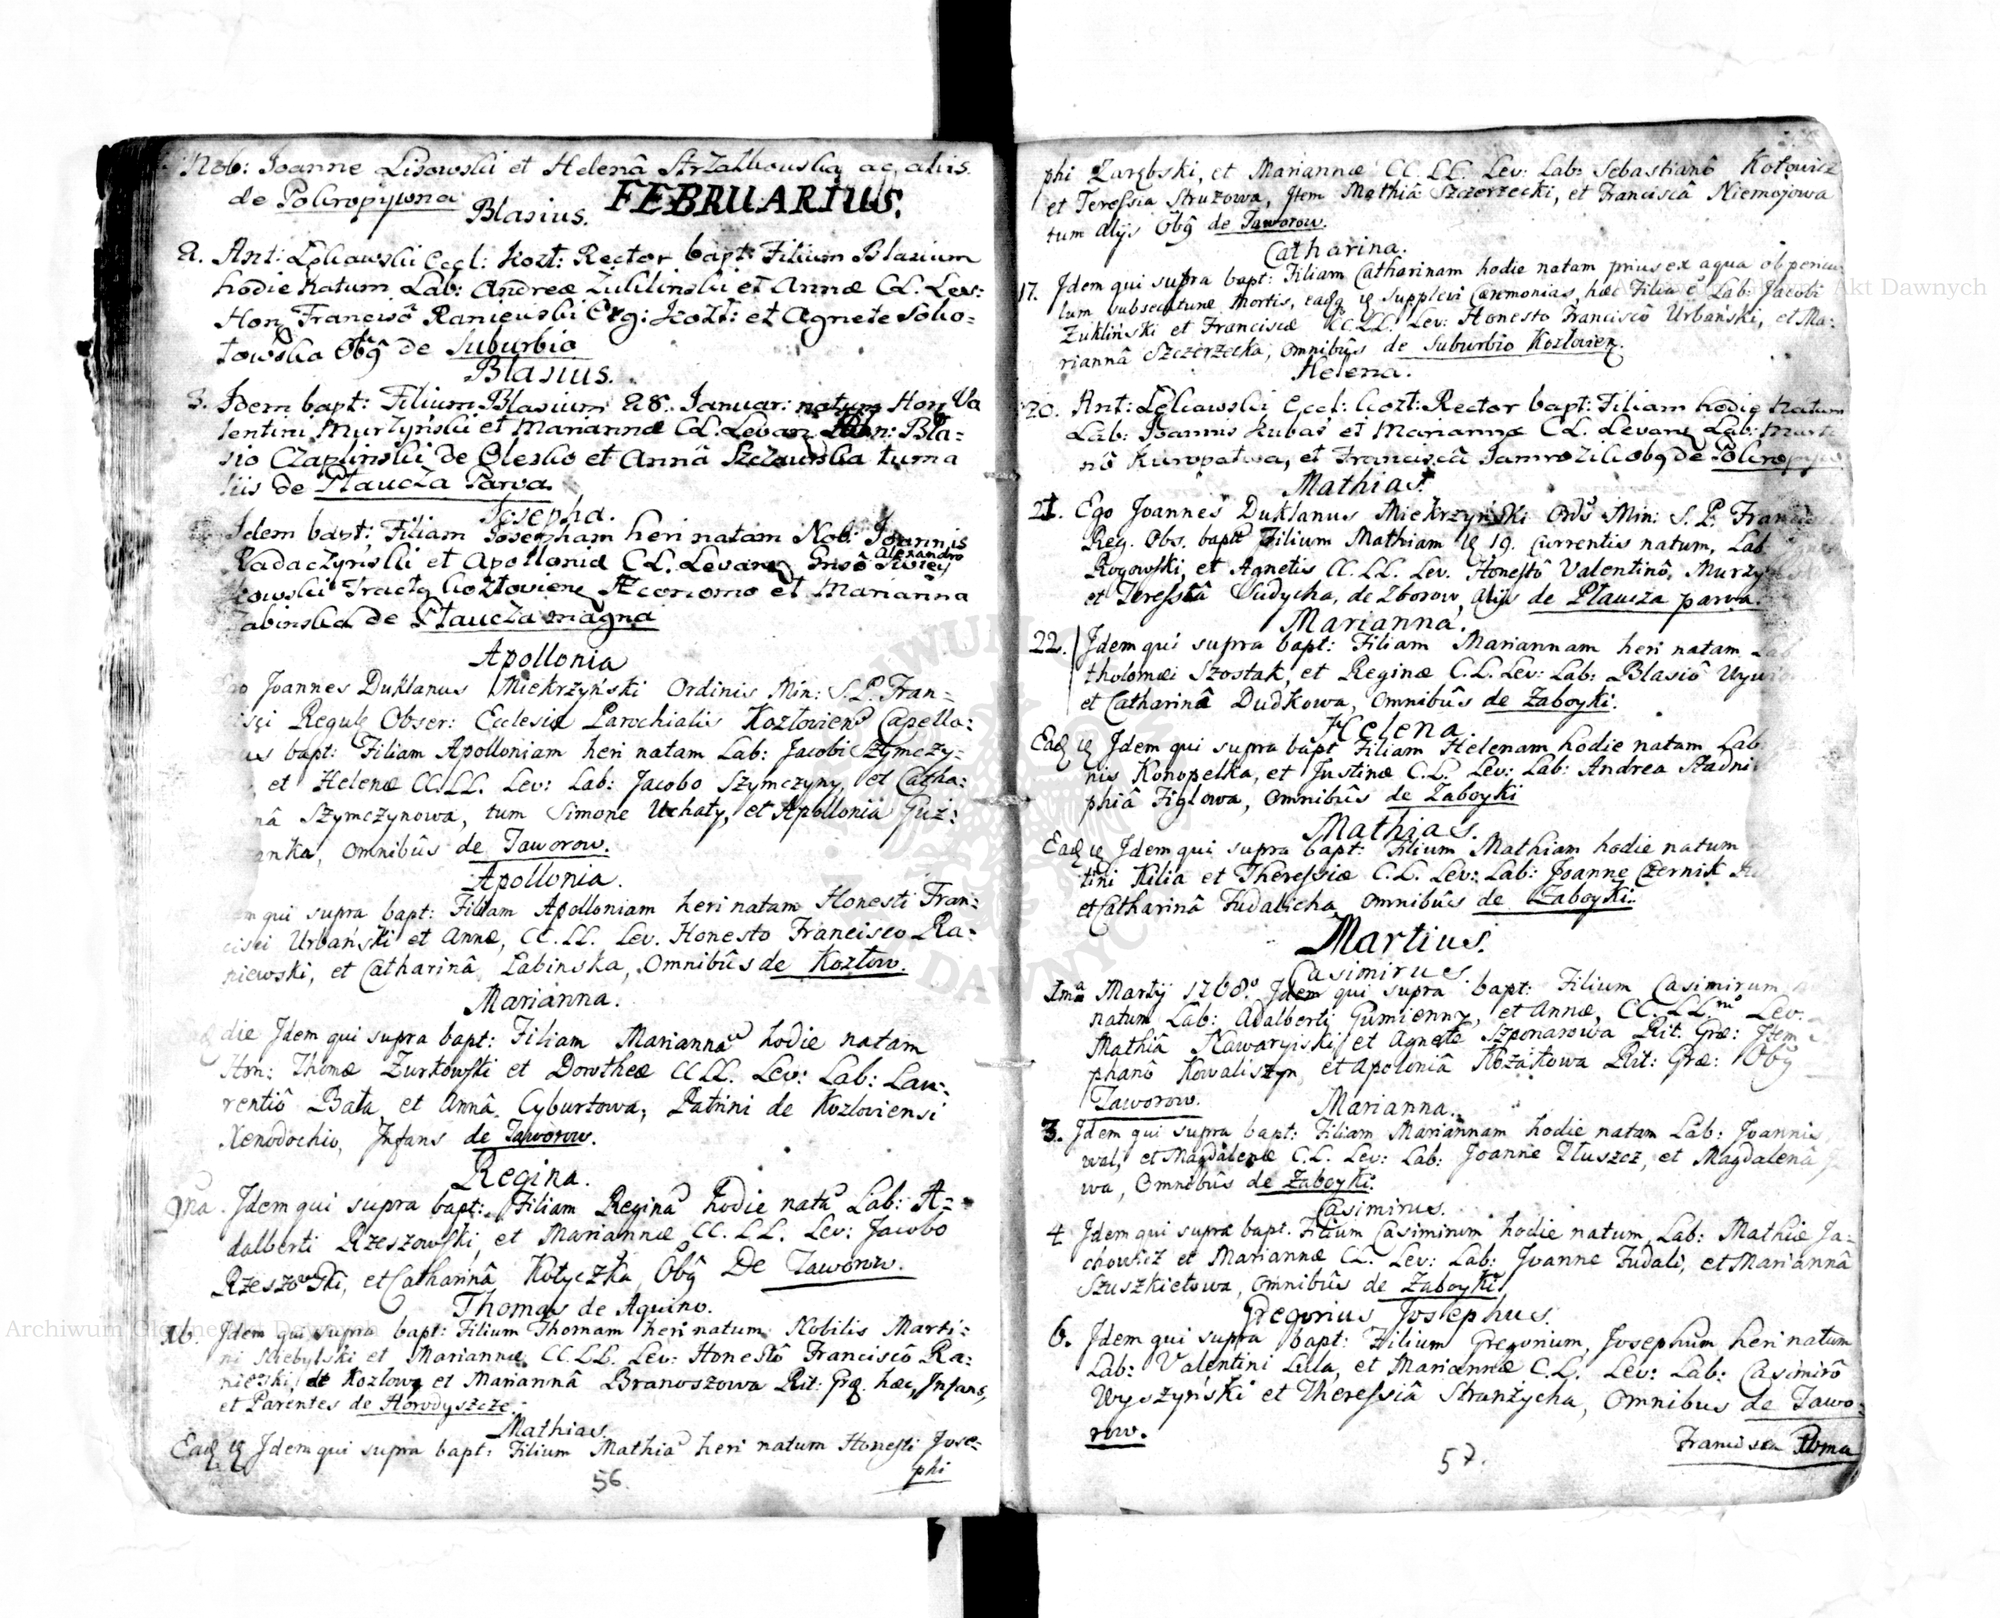 Nob: Joanne Lisowski et Helenâ Strzalkowska ac aliis
de Pokropywna
FEBRUARIUS.
Blasius.
2. Ant: Lękawski Eccl: Kozł: Rector bapt: Filium Blasium
hodie natum Lab: Andreæ Zuklinski et Annæ C.L. Lev:
Hon Franciscô Raniewski Org: Kozł: et Agnete Soko=
łowska Obg̃ de Suburbio
Blasius.
3. Idem bapt: Filium Blasium 28. Januar: natum Hon Va
lentini Murzyński et Mariannæ C.L. Levan: Bla=
sio Czaplinski de Olesko et Annâ tum a
liis de Płaucza Parva
Josepha.
Idem bapt: Filiam Josepham heri natam Nob: Joannis
Radaczynski et Apollonia C.L. Levan Gnso Alexandro
kowski Tractq Kozłovien Æconomo et Marianna
Łabinska de Płaucza magna
Apollonia
Ego Joannes Duklanus Miekrzyński Ordinis Min: S.P. Fran=
Regulę Obser: Ecclesiæ Parochialis Kozłoviens Capella=
nus bapt: Filiam Apolloniam heri natam Lab: Jacobi Szymczy=
et Helenæ CC.LL. Lev: Lab: Jacobo Szymczyny, et Catha=
nâ Szymczynowa, tum Simone Uchaty, et Apolloniâ Guz=
anka, omnibûs de Jaworow.
Apollonia.
Idem qui supra bapt: Filiam Apolloniam heri natam Honesti Fran=
cisci Urbański et Annæ, CC.LL. Lev. Honesto Francisco Ra=
niewski, et Catharinâ Łabinska, Omnibûs de Kozłow.
Marianna.
die Idem qui supra bapt: Filiam Marianna hodie natam
Hon: Thomæ Zurkowski et Dorotheæ CC.LL. Lev: Lab: Lau=
rentiô Bała et Annâ Cyburtowa, Patrini de Kozloviensi
Xenodochio, Infans de Jaworow.
Regina.
Idem qui supra bapt: Filiam Regina hodie nata Lab: A=
dalberti Rzeszowski, et Mariannæ CC.LL. Lev: Jacobo
Rzeszowski, et Catharinâ Kotyczka Obg̃ De Jaworow.
Thomas de Aquino.
16. Idem qui supra bapt: Filium Thomam heri natum Nobilis Marti=
ni Niebylski et Mariannæ CC.LL. Lev: Honestô Franciscô Ra=
niewski, de Kozlow et Mariannâ Branoszowa Rit: Græ. hæc Infans,
et Parentes de Horodyszcze.
Mathias.
Eadę Idem qui supra bapt: Filium Mathia heri natum Honesti Jose=
phi
56
phi Zarębski, et Mariannæ CC.LL. Lev: Lab: Sebastianô Kołowicz
et Teressia Struzowa, Item Mathiâ Szczerzecki, et Franciscâ Niemojowa
tum alijs Obg̃ de Jaworow.
Catharina.
17. Idem qui supra bapt: Filiam Catharinam hodie natam prius ex aqua ob pericu
lum subsecuturæ mortis, eadę supplevi Cæremonias, hæc Filia ê Lab: Jacobi
Zukliński et Franciscæ CC.LL. Lev: Honesto Francisco Urbański, et Ma=
riannâ Szczerzecka, omnibûs de Suburbio Kozłovien.
Helena.
20. Ant: Lękawski Eccl: Kozł: Rector bapt: Filiam hodie natam
Lab: Joannis Kubas et Mariannæ C.L. Levan Lab: Marti
nô Kuropatwa, et Franciscâ Jamrozik obg de Pokropyw
Mathias.
21. Ego Joannes Duklanus Miekrzyński Ord's Min: S.P. Francisci
Reg. Obs. bapt Filium Mathiam 19. currentis natum, Lab
Rogowski, et Agnetis CC.LL. Lev. Honestô Valentinô, Murzy
et Teressiâ Dudycha, de Zborow, alijs de Płaucza parva.
Marianna.
22. Idem qui supra bapt: Filiam Mariannam heri natam Lab
tholomæi Szostak, et Reginæ C.L. Lev: Lab: Blasiô
et Catharinâ Dudkowa, omnibûs de Zaboyki.
Helena.
Eadę Idem qui supra bapt Filiam Helenam hodie natam Lab
nis Konopelka, et Justinæ C.L. Lev: Lab: Andrea Stadni
phiâ Figlowa, omnibûs de Zaboyki
Mathias.
Eadę Idem qui supra bapt: Filium Mathiam hodie natum
tini Kilia et Theressiæ C.L. Lev: Lab: Joanne Czernik
et Catharinâ Fudalicha omnibûs de Zaboyki.
Martius.
Casimirus
1ma Martij 1768. Idem qui supra bapt: Filium Casimirum
natum Lab: Adalberti Gumienny, et Annæ, CC.LL. Lev:
Mathiâ Kawaryiski et Agnete Szponarowa Rit. Græ: Item
phanô Kowaliszyn, et Apoloniâ Kozakowa Rit: Græ: Obg̃
Jaworow.
Marianna.
3. Idem qui supra bapt: Filiam Mariannam hodie natam Lab: Joannis
wal, et Magdalenæ C.L. Lev: Lab: Joanne Tłuszcz, et Magdalenâ
wa, Omnibûs de Zaboyki.
Casimirus.
4. Idem qui supra bapt. Filium Casimirum hodie natum Lab: Mathiæ Ja=
chowicz et Mariannæ CL. Lev: Lab: Joanne Fudali, et Mariannâ
Szuszkietowa, omnibûs de Zaboyki
Gregorius Josephus.
6. Idem qui supra bapt: Filium Gregorium, Josephum heri natum
Lab: Valentini Lula, et Mariannæ C.L. Lev: Lab: Casimirô
Wyszyński et Theressiâ Stranżycha, Omnibus de Jawo=
row.
57.
Francisca Roma